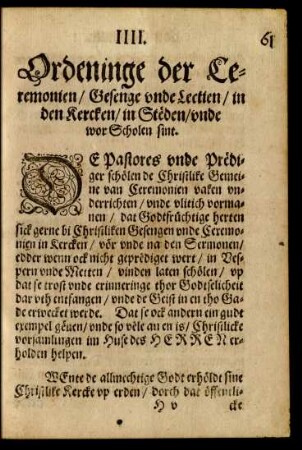 IIII.
61
Ordeninge der Ce-
remonien / Gesenge vnde Lectien / in
den Kercken / in Steden / vnde
wor Scholen sint.
DE Pastores vnde Prediger
schölen de Christlike Gemei-
ne van Ceremonien vaken vn-
derrichten / vnde vlitich vorma-
nen / dat Godtfrüchtige herten
sick gerne bi Christliken Gesengen vnde Ceremo-
nien in Kercken / vör vnde na den Sermonen /
edder wenn ock nicht geprediget wert / in Ves-
pern vnde Metten / vinden laten schölen / vp
dat se trost vnde erinneringe thor Godtselicheit
dar vth entfangen / vnde de Geist in en tho Ga-
de erwecket werde. Dat se ock andern ein gudt
exempel geuen / vnde so vele an en is / Christlicke
vorsamlingen im Huse des HERREN er-
holden helpen.
WEnte de allmechtige Godt erhöldt sine
Christlike Kercke vp erden / dorch dat öffentli-
H v
cke